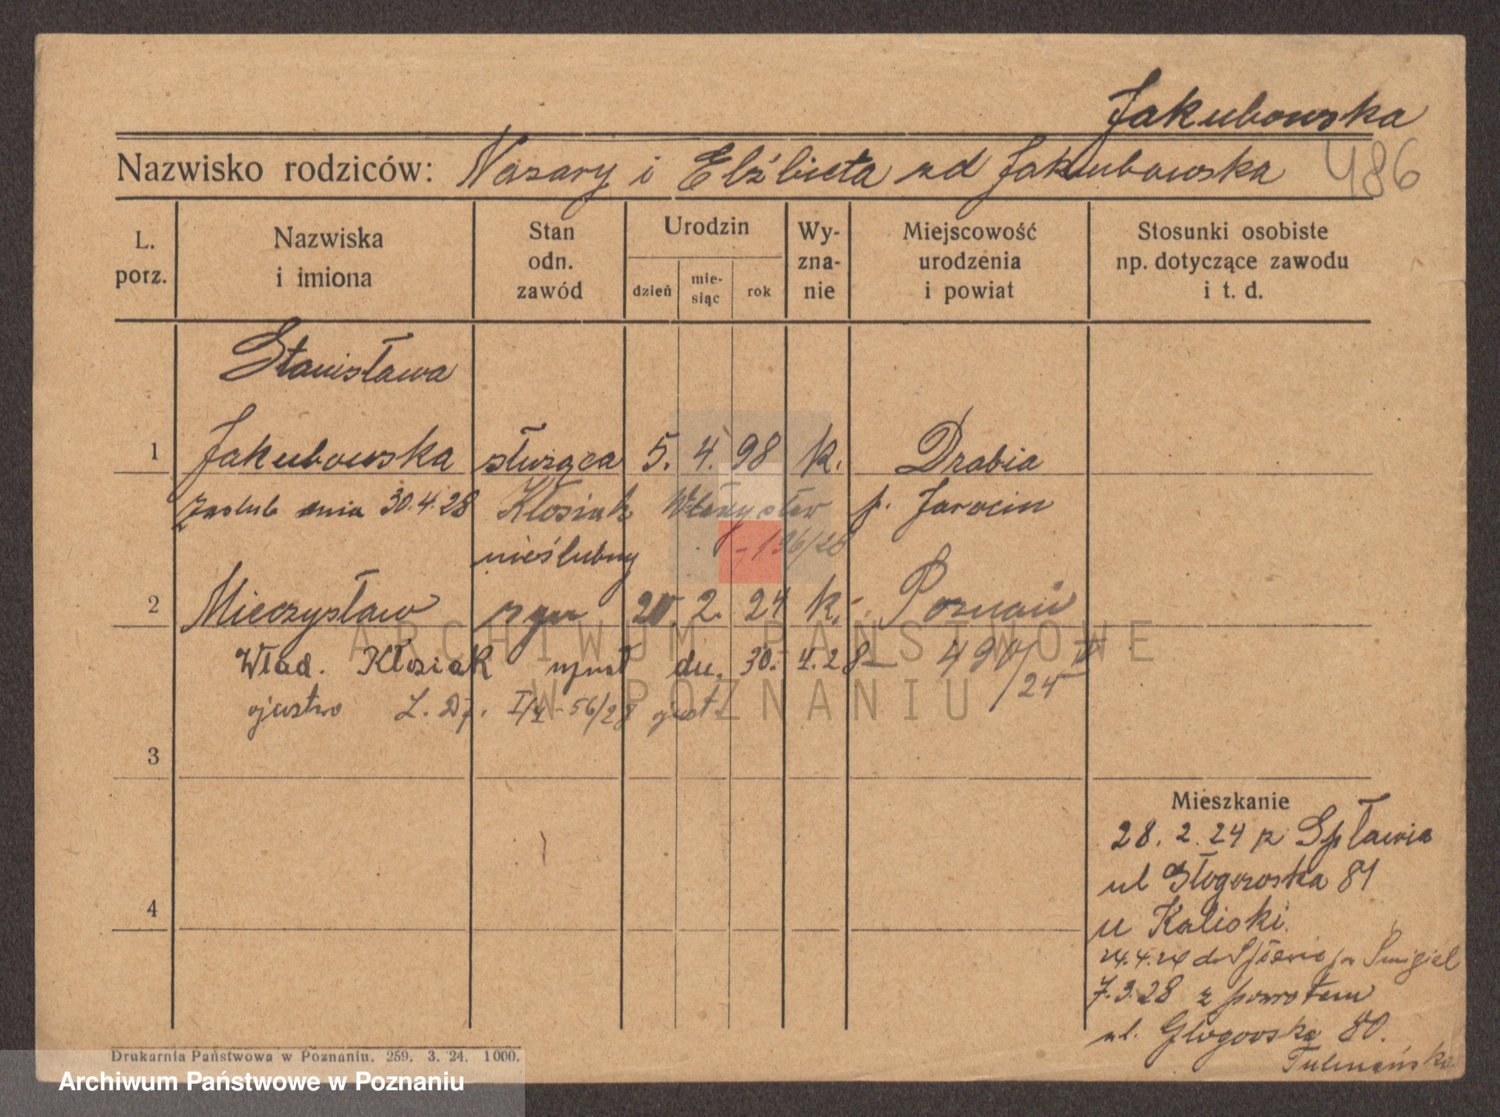 Jakubowska
Nazwisko rodziców: Nazary i Elżbieta zd Jakubowska 486
L. porz.
Nazwiska i imiona
Stan odn. zawód
Urodzin
dzień
mie- siąc
rok
Wy- zna- nie
Miejscowość urodzenia i powiat
Stosunki osobiste np. dotyczące zawodu i t. d.
Stanisława
1 Jakubowska służąca 5. 4. 98 k. Drabia
zaślub dnia 30.4.28 Kłosiak Władysław p. Jarocin
nieślubny 196/28
2 Mieczysław syn 2. 24 k. Poznań
Wład. Kłosiak uznał dn. 30. 4. 28
ojcostwo 56/28
3
4
Mieszkanie
28. 2. 24 z Spławia
ul Głogowska 81
u Kaliski.
24.4.24 do Spławie p. Śmigiel
7.3.28 z powrotem
ul. Głogowska 80.
Drukarnia Państwowa w Poznaniu. 259. 3. 24. 1000.
ARCHIWUM PAŃSTWOWE
W POZNANIU
Archiwum Państwowe w Poznaniu